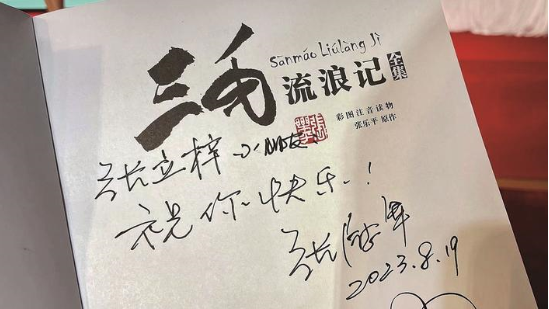 Sānmáo Liúlàng Jì
三毛流浪记全集
彩图注音读物
张乐平 原作
张立梓 小朋友
祝你快乐!
2023.8.19